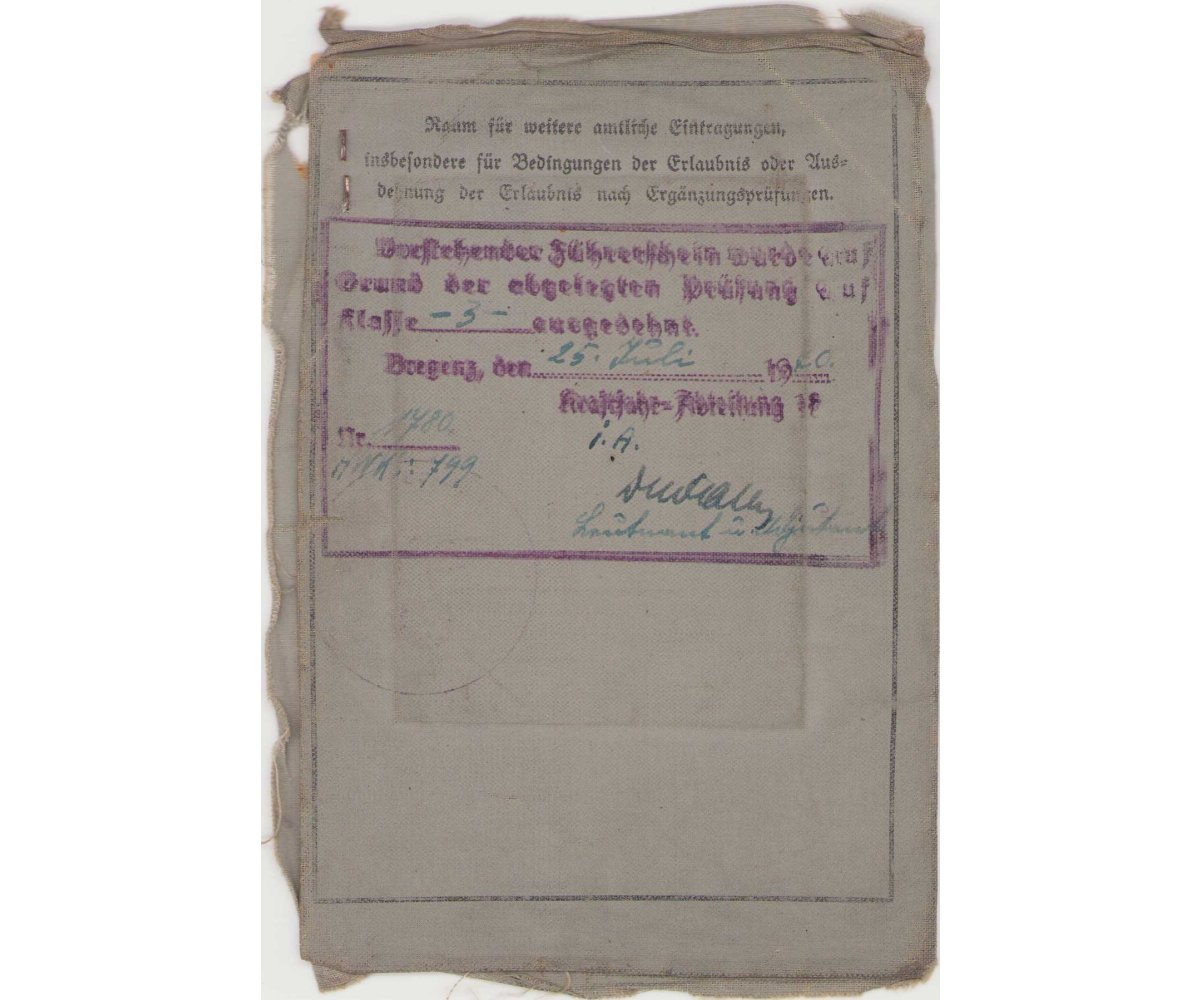 Raum für weitere amtliche Eintragungen,
insbesondere für Bedingungen der Erlaubnis oder Aus-
dehnung der Erlaubnis nach Ergänzungsprüfungen.
Vorstehender Führerschein wurde auf
Grund der abgelegten Prüfung auf
Klasse -3- ausgedehnt.
Bregenz, den 25. Juli 1940.
Kraftfahr-Abteilung 18
Nr. 1780.
i. A.
799
Leutnant u. Adjutant